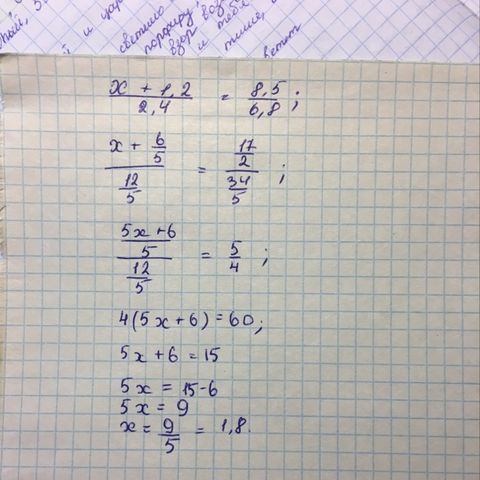 светило
порфиру,
взор
и тебя
x + 1,2 / 2,4 = 8,5 / 6,8 ;
x + 6/5 / 12/5 = 17/2 / 34/5 ;
5x + 6 / 5 / 12/5 = 5/4 ;
4(5x + 6) = 60;
5x + 6 = 15
5x = 15-6
5x = 9
x = 9/5 = 1,8.